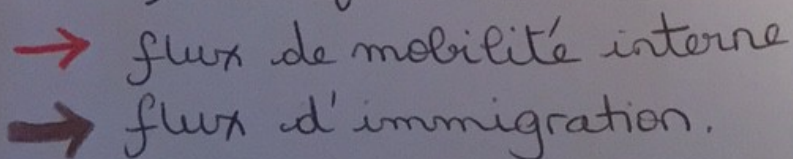 → flux de mobilité interne
→ flux d'immigration.